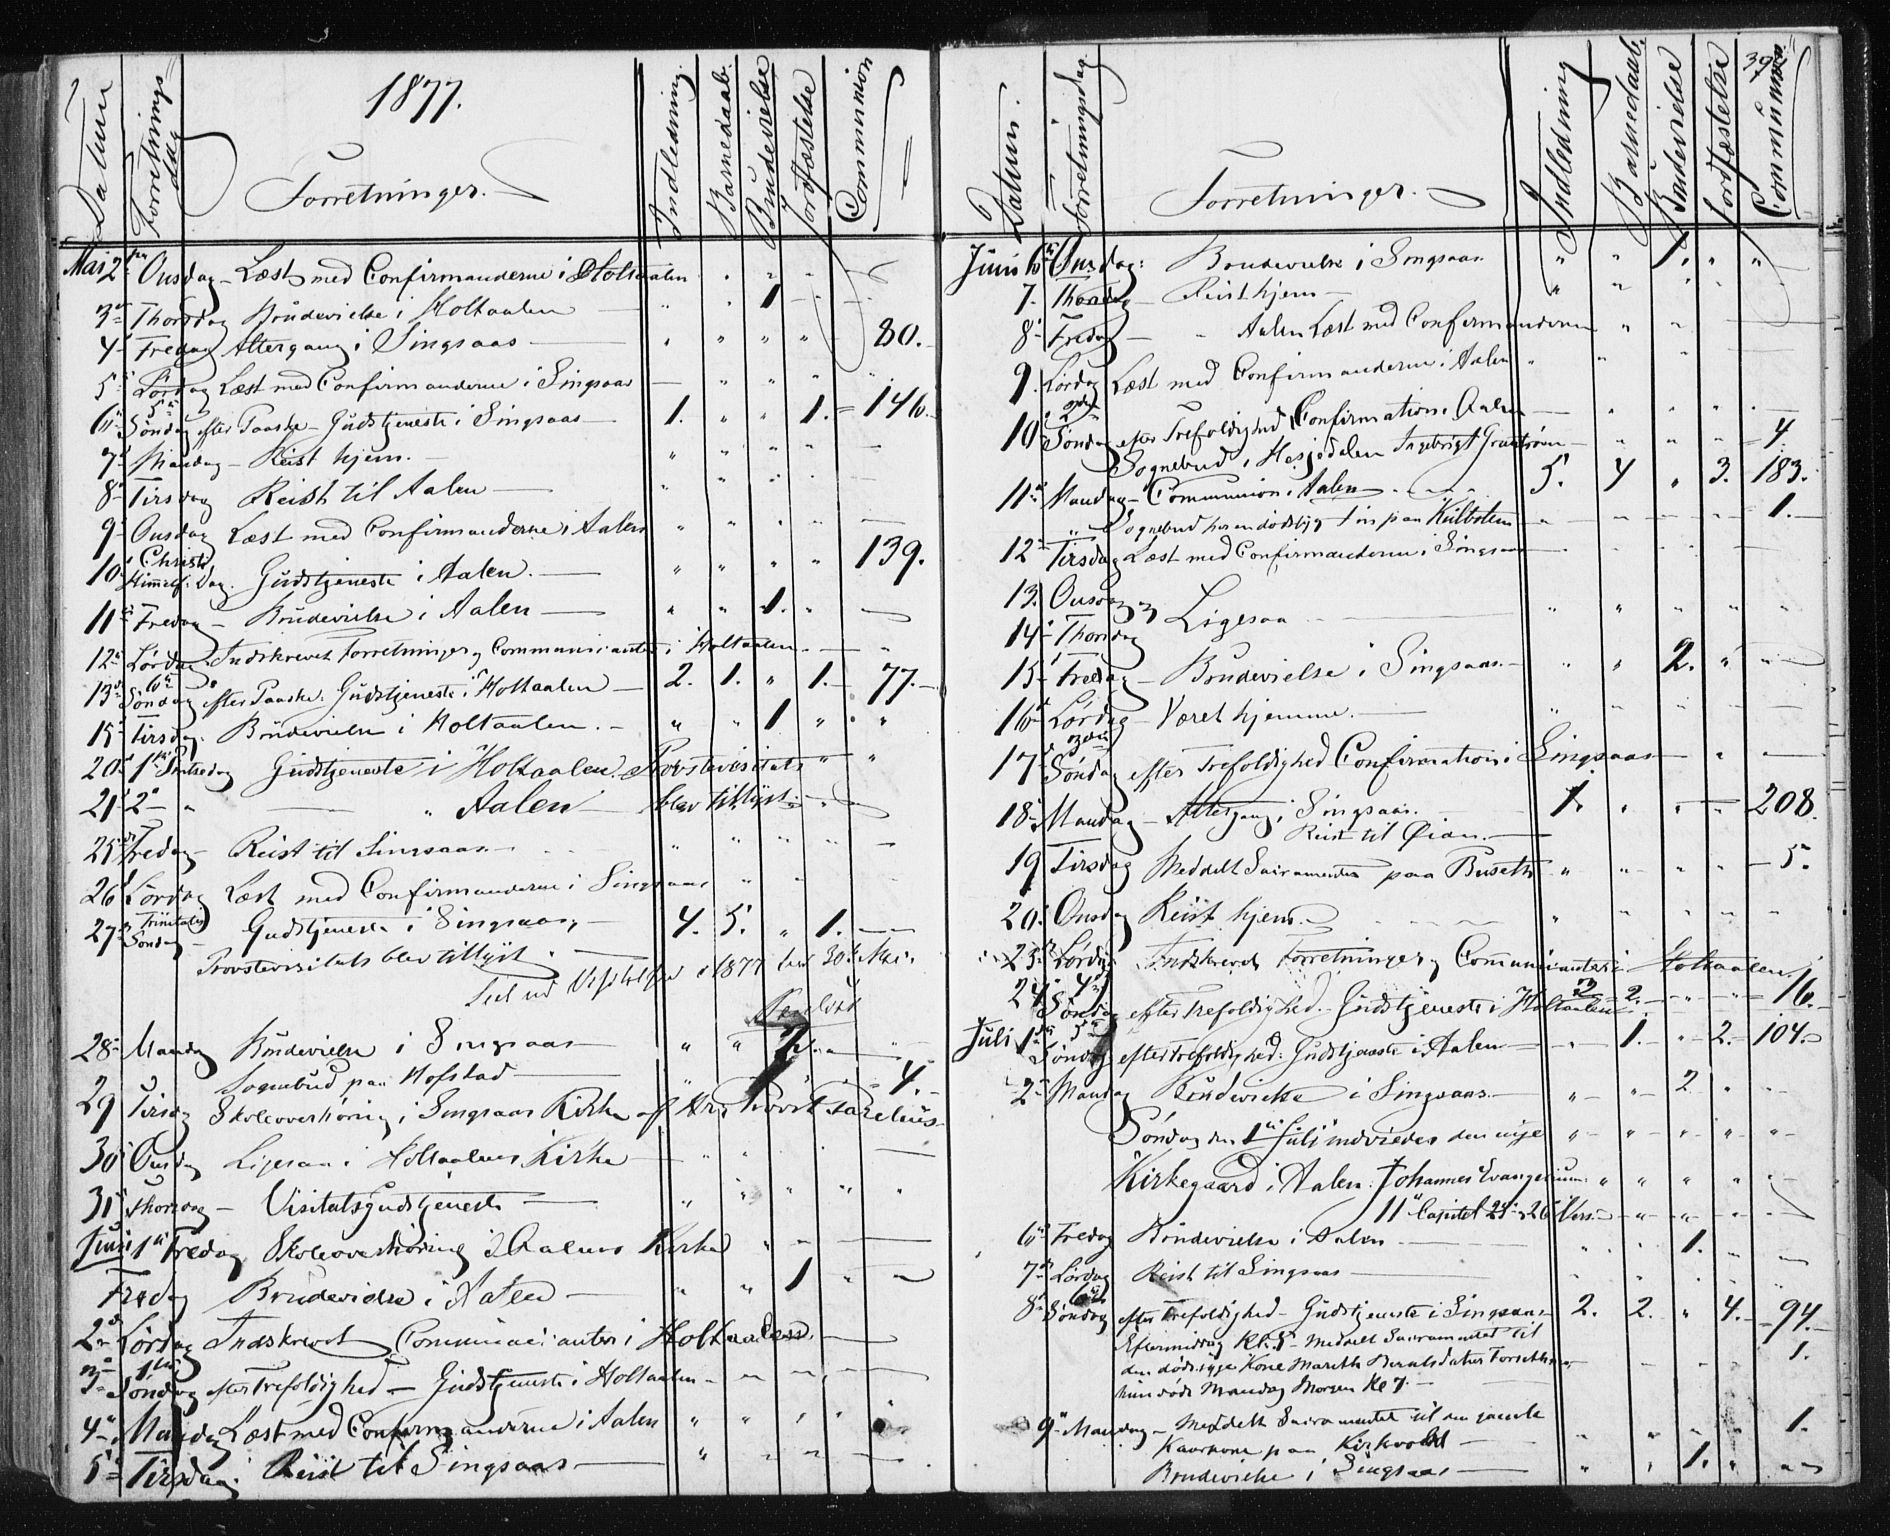 1877.
Datum Forretningsdag Forretninger. Indledning. Barnedaab. Brudevielse Jordfæstelse Communion
Mai 2den Onsdag – Læst med Confirmanderne i Holtaalen
3de Thorsdag Brudevielse i Holtaalen 1
4de Fredag Altergang i Singsaas 80.
5te Lørdag Læst med Confirmanderne i Singsaas
6te 5te Søndag efter Paaske – Gudstjeneste i Singsaas 1. 1. 146.
7de Mandag – Reist hjem.
8de Tirsdag Reist til Aalen
9de Onsdag Læst med Confirmanderne i Aalen
10de Christi Himmelf: Dag. Gudstjeneste i Aalen. 139.
11te Fredag – Brudevielse i Aalen 1.
12te Lørdag Indskrevet Forretninger og Communicanter i Holtaalen.
13de 6te Søndag efter Paaske. Gudstjeneste i Holtaalen 2. 1. 1. 77.
15de Tirsdag. Brudevielse i Holtaalen. 1
20de 1ste Pintsedag Gudstjeneste i Holtaalen. Provstevisitats
21de 2den " " Aalen blev tillyst.
25de Fredag – Reist til Singsaas
26de Lørdag Læst med Confirmanderne i Singsaas
27de Trinitatis Søndag – Gudstjeneste i Singsaas, 4. 5. 1.
Provstevisitats blev tillyst.
1877 den 30te Mai.
28de Mandag Brudevielse i Singsaas
Sognebud paa Hofstad 4.
29 Tirsdag Skoleoverhøring i Singsaas Kirke af Hr. Provst
30 Onsdag Ligesaa i Holtaalens Kirke
31te Thorsdag – Visitatsgudstjeneste
Juni 1ste Fredag Skoleoverhøring i Aalens Kirke
Fredag Brudevielse i Aalen 1
2den Lørdag Indskrevet Communicanter i Holtaalen.
3de 1ste Søndag efter Trefoldighed – Gudstjeneste i Holtaalen
4de Mandag Læst med Confirmanderne i Aalen
5te Tirsdag. Reist til Singsaas
39
Datum. Forretningsdag Forretninger. Indledning Barnedaab. Brudevielse Jordfæstelse Communion
Juni 6te Onsdag: Brudevielse i Singsaas 1.
7. Thorsdag – Reist hjem
8de Fredag – Aalen Læst med Confirmanderne
9. Lørdag Læst med Confirmanderne i Aalen
10 2den Søndag efter Trefoldighed Confirmation i Aalen
Sognebud i Hesjedalen Ingebrigt 4.
11te Mandag – Communion i Aalen 5. 4 3. 183.
Sognebud hos en dødssyg paa Kulboten 1.
12te Tirsdag Læst med Confirmanderne i Singsaas
13. Onsdag og
14de Thorsdag Ligesaa
15de Fredag – Brudevielse i Singsaas. 2.
16de Lørdag – Været hjemme.
17de 3die Søndag efter Trefoldighed Confirmation i Singsaas
18de Mandag – Altergang i Singsaas. 1. 208.
Reist til Øian.
19 Tirsdag Meddelt Sacramentet paa Buseth 5.
20. Onsdag Reist hjem.
23de Lørdag Indskrevet Forretninger og Communicanter i Holtaalen
24de 4de Søndag efter Trefoldighed. Gudstjeneste i Holtaalen 2 2. 16.
Juli 1ste 5te Søndag efter Trefoldighed: Gudstjeneste i Aalen 1. 2. 104.
2den Mandag Brudevielse i Singsaas. 2
Søndag den 1ste Juli indviedes den nye
Kirkegaard i Aalen. Johannes Evangelium
11te Capitel 25 – 26 Vers.
6te Fredag Brudevielse i Aalen 1.
7de Lørdag Reist til Singsaas
8de 6te Søndag efter Trefoldighed – Gudstjeneste i Singsaas 2. 2. 4. 94.
Eftermiddag Kl. 5 – meddelt Sacramentet til
den dødssyge Kone Mareth Berntsdatter 1.
hun døde Mandag Morgen Kl 7.
9de Mandag – Meddelt Sacramentet til den gamle 1.
paa Kirkvold
Brudevielse i Singsaas 1.